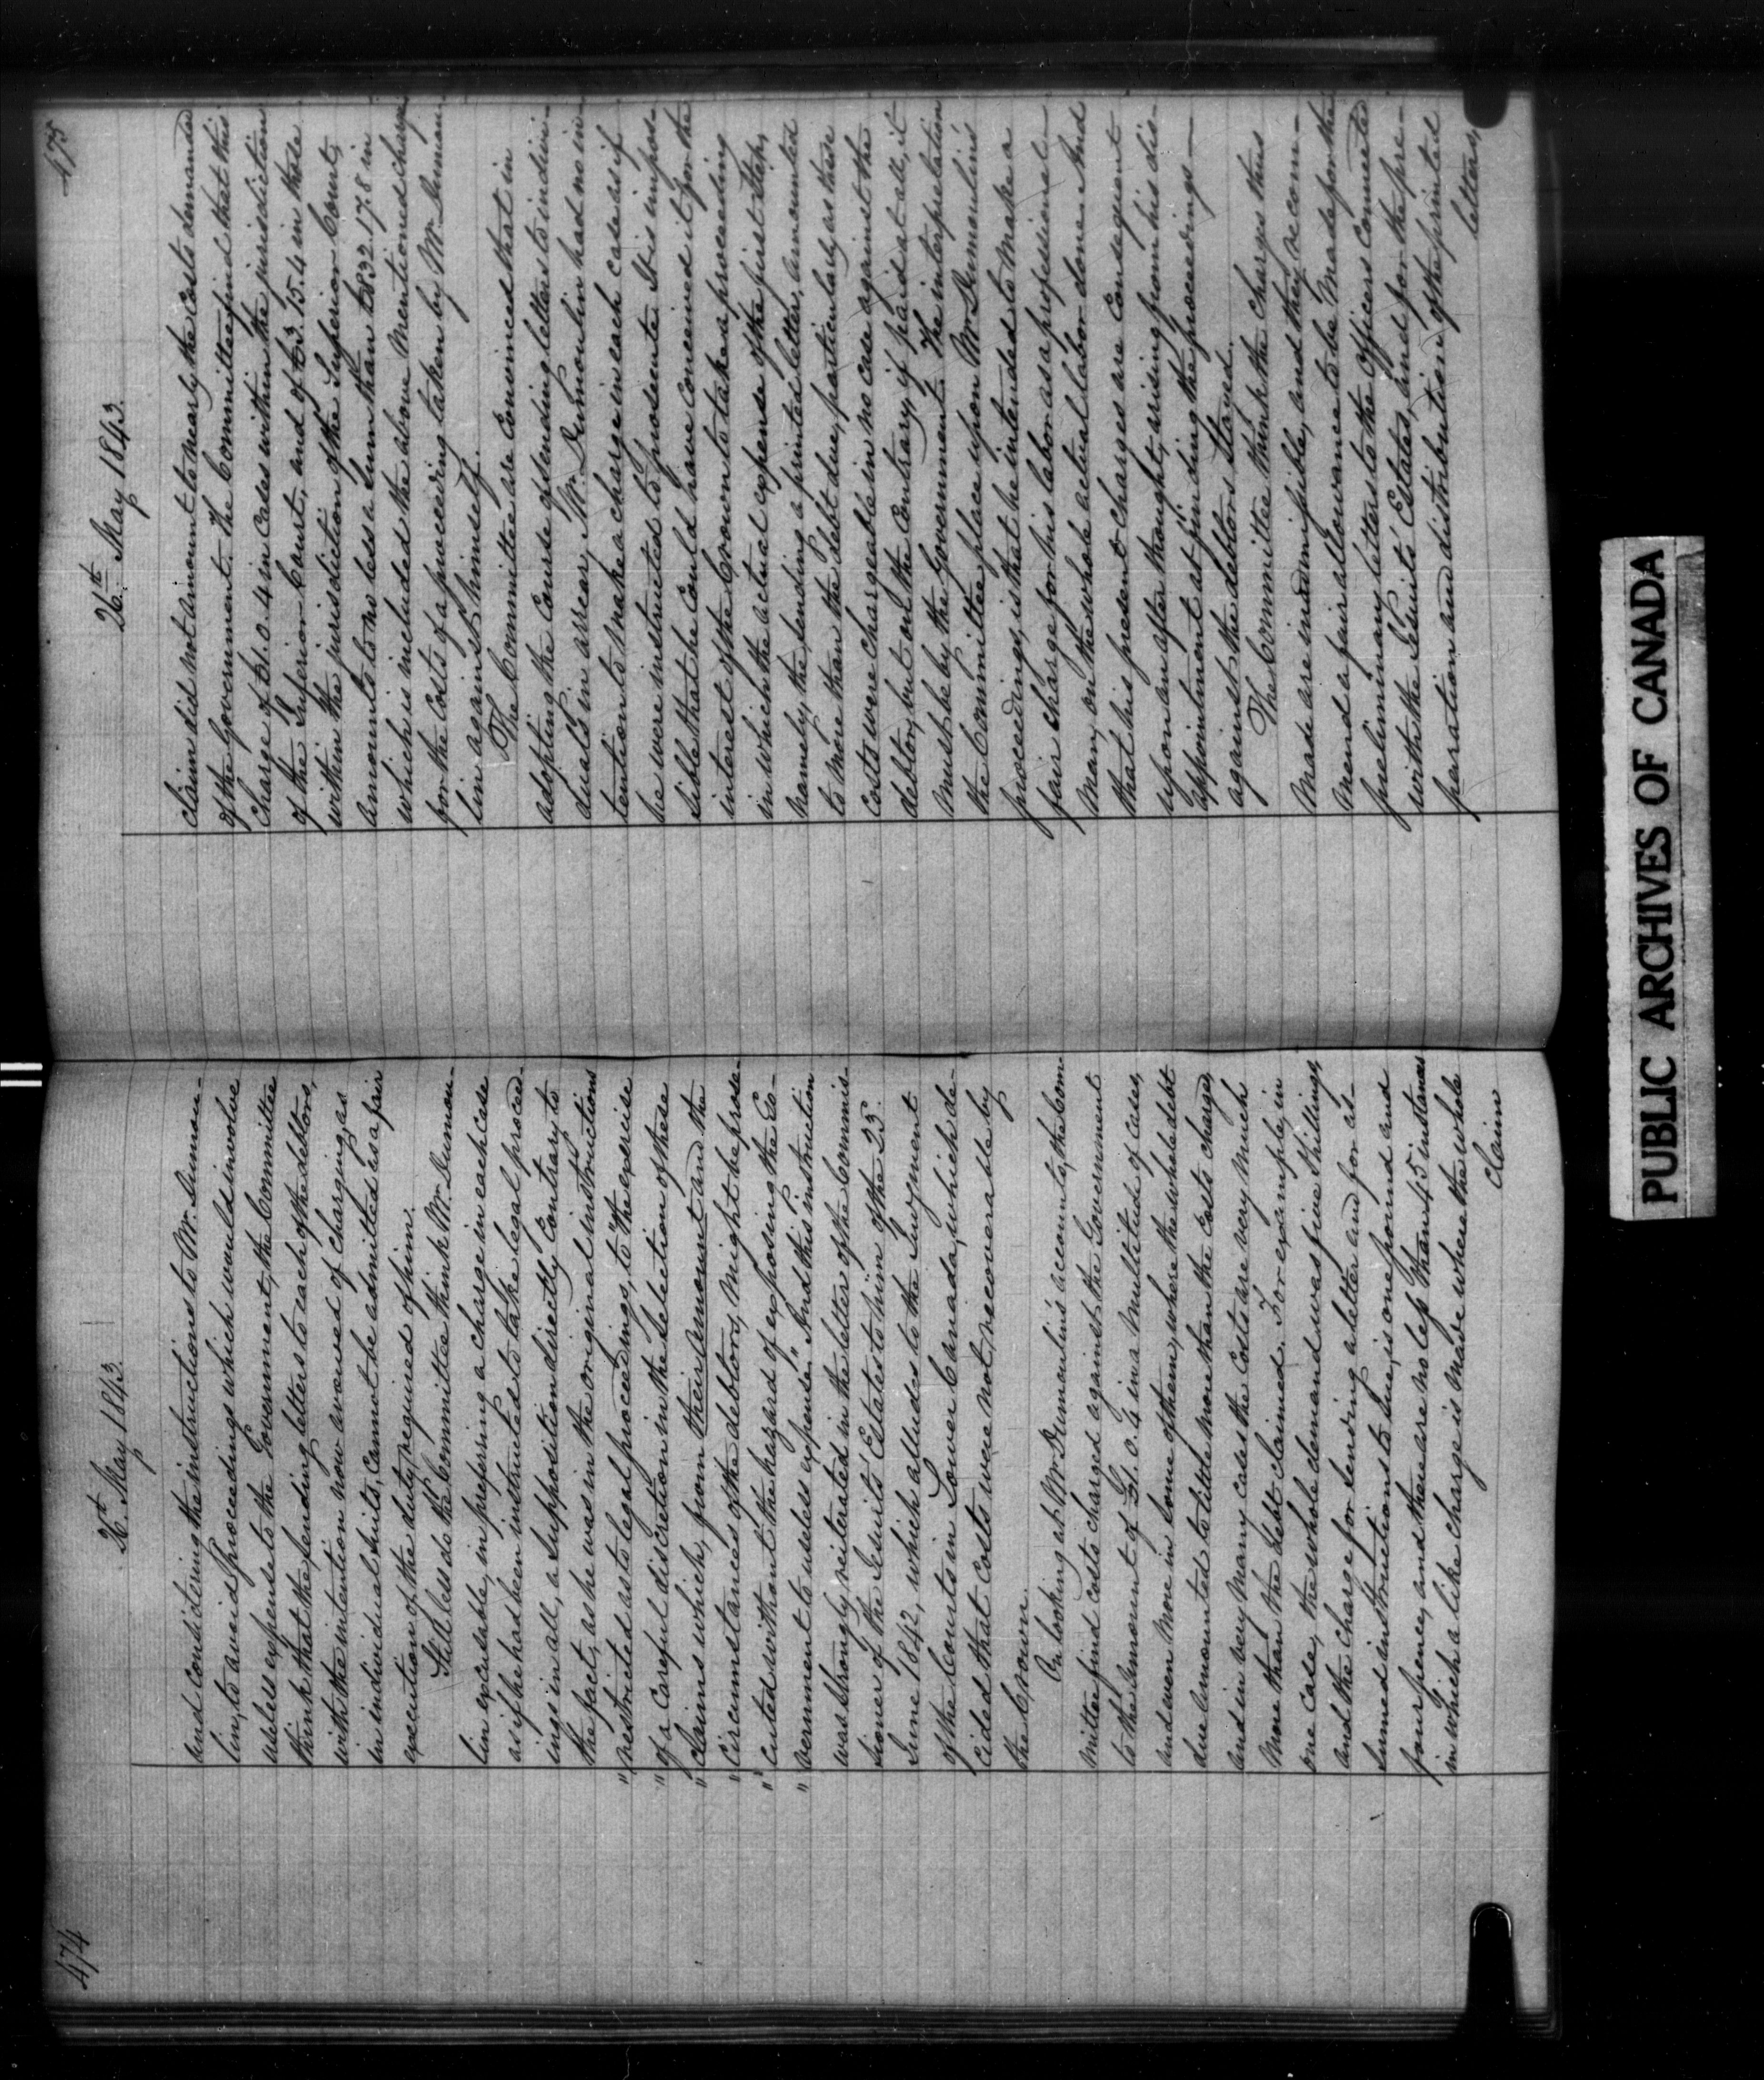 474
26th May 1843.
and considering the instructions to Mr. Dumou-
lin, to avoid proceedings which would involve
useless expense to the Government, the Committee
think that the sending letters to each of the debtors,
with the intention now avowed of charging, as
in individual suits, cannot be admitted as a fair
execution of the duty required of him.
Still less do the Committee think Mr. Dumou-
lin excusable, in preferring a charge in each case
as if he had been instructed to take legal proceed-
ings in all, a supposition directly contrary to
the fact, as he was in the original instructions
" restricted as to legal proceedings, to "the exercise
" of a careful discretion in the selection of these
" claims which, from their amount and the
" circumstances of the debtors, might be prose-
" cuted without the hazard of exposing the Go-
" vernment to useless expense." And this instruction
was strongly reiterated in the letter of the Commis-
sioner of the Jesuits' Estates to him of the 25.
June 1842, which alludes to the Judgment
of the Courts in Lower Canada, which de-
cided that costs were not recoverable by
the Crown.
On looking at Mr. Dumoulin's accounts, the Com-
mittee find costs charged against the Government
to the amount of £1. 0. 4 in a multitude of cases,
and even more in some of them, where the whole debt
due amounted to little more than the costs charged,
and in very many cases the costs are very much
more than the debt claimed. For example, in
one case, the whole demand was five shillings,
and the charge for sending a letter and for as-
sumed instructions to sue, is one pound and
four pence, and there are no less than 45 instances
in which a like charge is made where the whole
claim
475
26th May 1843.
claim did not amount to nearly the costs demanded
of the Government. The Committee find that this
charge of £1. 0. 4 in cases within the jurisdiction
of the Inferior Court, and of £3. 15. 4 in those
within the jurisdiction of the Superior Court,
amounts to no less a sum than £832. 17. 8 in
which is included the above mentioned charge
for the costs of a proceeding taken by Mr. Dumou-
lin against himself.
The Committee are convinced that in
adopting the course of sending letters to indivi-
duals in arrear, Mr. Dumoulin had no in-
tention to make a charge in each case as if
he were instructed to prosecute. It is impos-
sible that he could have conceived it for the
interest of the Crown to take a proceeding
in which the actual expense of the first step,
namely, the sending a printed letter, amounted
to more than the debt due, particularly as these
costs were chargeable in no case against the
debtor, but on the contrary, if paid at all, it
must be by the Government. The interpretation
the Committee place upon Mr. Dumoulin's
proceedings, is that he intended to make a
fair charge for his labor as a professional
man, on the whole actual labor done. And
that his present charges are consequent
upon an after thought, arising from his dis-
appointment at finding the proceedings
against the debtors stayed.
The Committee think the charges thus
made are inadmissible, and they recom-
mend a fair allowance to be made for the
preliminary letters to the officers connected
with the Jesuits' Estates, and for the pre-
paration and distribution of the printed
letters,
PUBLIC ARCHIVES OF CANADA